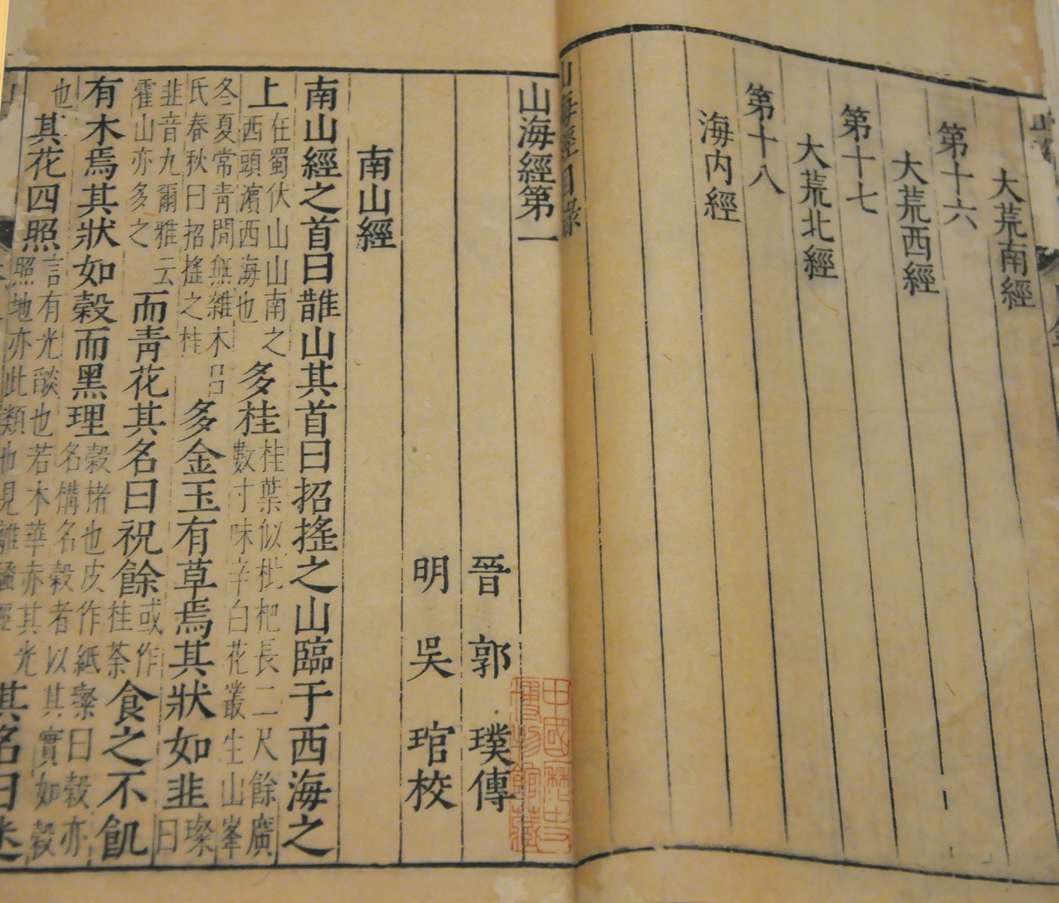 大荒南經
第十六
大荒西經
第十七
大荒北經
第十八
海內經
山海經目錄
山海經第一
晉 郭 璞傳
明 吳 琯校
中國歷史
博物館藏
南山經
南山經之首曰䧿山其首曰招搖之山臨于西海之
上在蜀伏山山南之西頭濱西海也多桂桂葉似枇杷長二尺餘廣數寸味辛白花叢生山峯
冬夏常青間無雜木呂氏春秋曰招搖之桂多金玉有草焉其狀如韭璨曰
韭音九爾雅云霍山亦多之而青花其名曰祝餘或作桂荼食之不飢
有木焉其狀如榖而黑理榖楮也皮作紙璨曰榖亦名構名榖者以其實如榖
也其花四照言有光燄也若木華赤其光照地亦此類也見離騷經其名曰迷